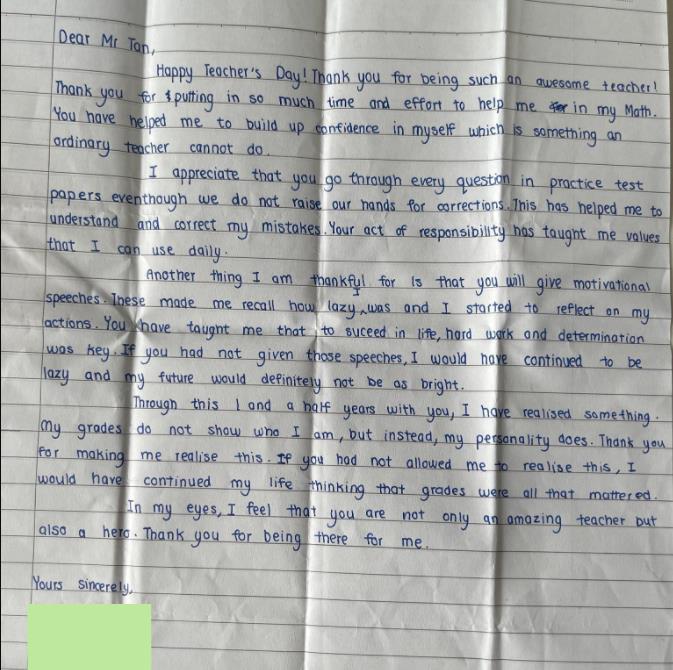 Dear Mr Tan,
Happy Teacher's Day! Thank you for being such an awesome teacher!
Thank you for putting in so much time and effort to help me in my Math.
You have helped me to build up confidence in myself which is something an
ordinary teacher cannot do.
I appreciate that you go through every question in practice test
papers eventhough we do not raise our hands for corrections. This has helped me to
understand and correct my mistakes. Your act of responsibility has taught me values
that I can use daily.
Another thing I am thankful for is that you will give motivational
speeches. These made me recall how lazy I was and I started to reflect on my
actions. You have taught me that to suceed in life, hard work and determination
was key. If you had not given those speeches, I would have continued to be
lazy and my future would definitely not be as bright.
Through this 1 and a half years with you, I have realised something.
My grades do not show who I am, but instead, my personality does. Thank you
for making me realise this. If you had not allowed me to realise this, I
would have continued my life thinking that grades were all that mattered.
In my eyes, I feel that you are not only an amazing teacher but
also a hero. Thank you for being there for me.
Yours sincerely,